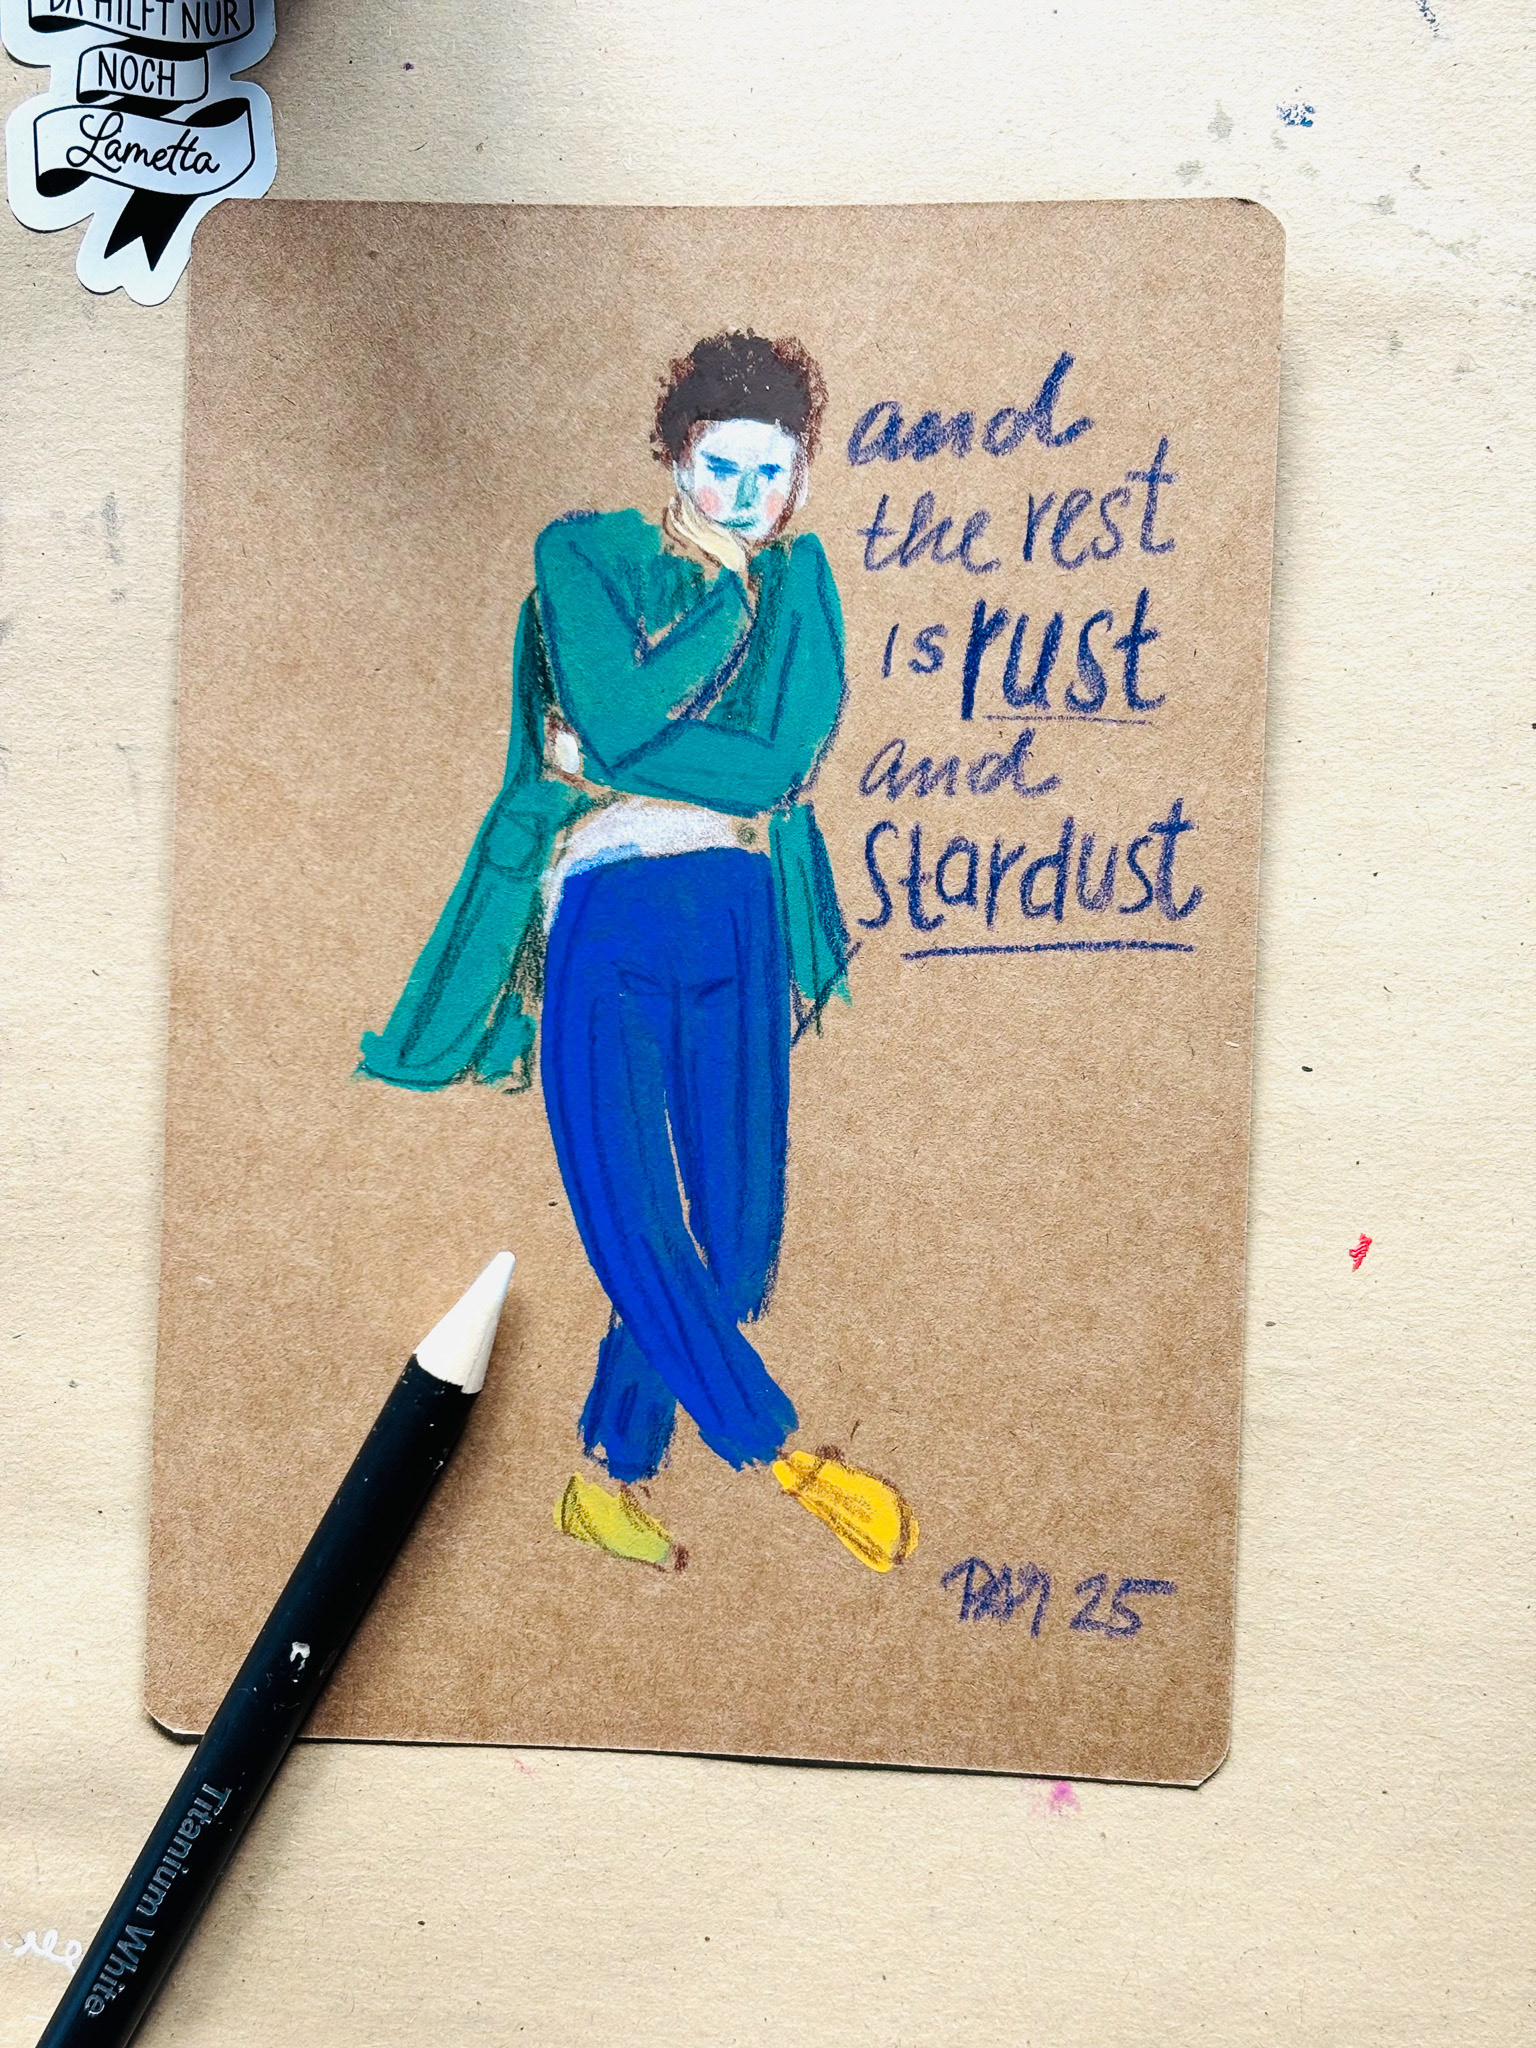 DA HILFT NUR
NOCH
Lametta
and
the rest
is rust
and
Stardust
25
Titanium White